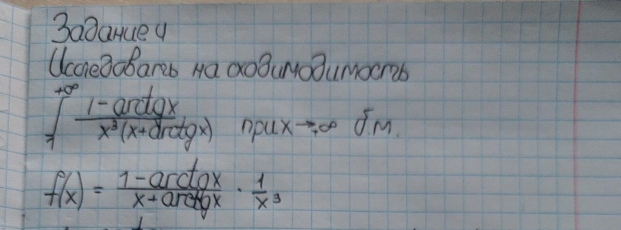 Задание 4
Исследовать на сходимодимость
+∞
∫ 1-arctgx / x³(x+arctgx) при x→+∞ б.м.
1
f(x) = 1-arctgx / x+arctgx · 1 / x³